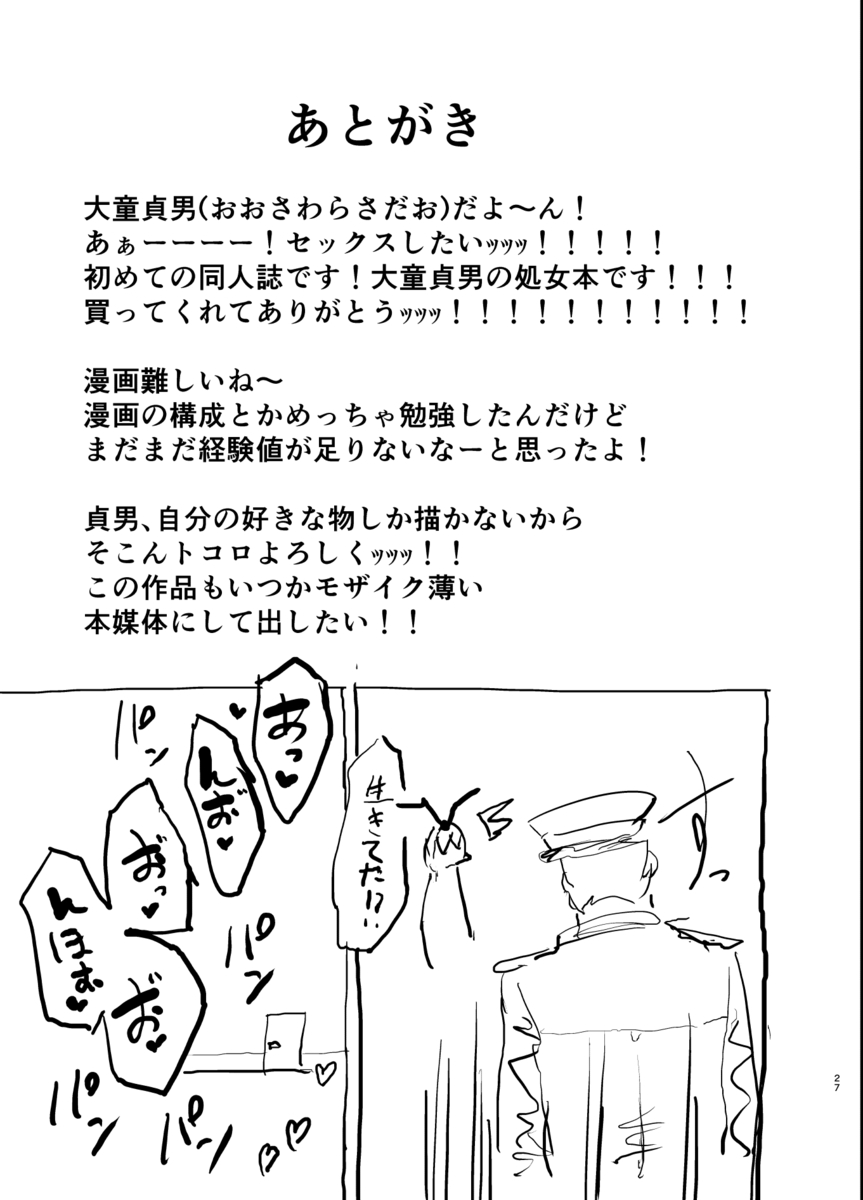 あとがき
大童貞男(おおさわらさだお)だよ～ん！
あぁーーーー！セックスしたいッッッ！！！！！
初めての同人誌です！大童貞男の処女本です！！！
買ってくれてありがとうッッッ！！！！！！！！！！！
漫画難しいね～
漫画の構成とかめっちゃ勉強したんだけど
まだまだ経験値が足りないなーと思ったよ！
貞男、自分の好きな物しか描かないから
そこんトコロよろしくッッッ！！
この作品もいつかモザイク薄い
本媒体にして出したい！！
スッ
生きてた!?
あっ♥
んお♥
おっ♥
んほお♥
お♥
パン
パン
パン
パン
27